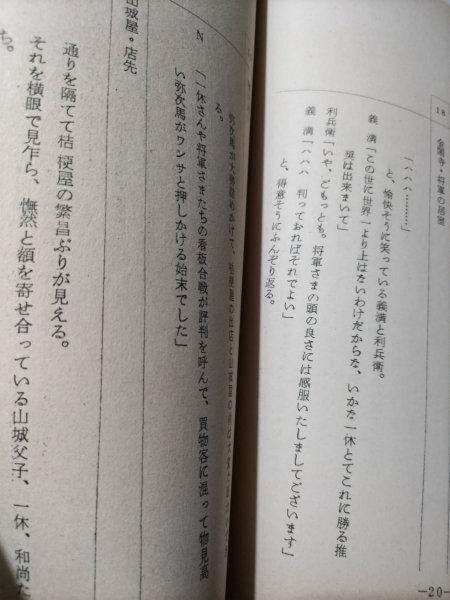 18 金閣寺・将軍の居室
「ハハハ………」
と、愉快そうに笑っている義満と利兵衛。
義満「この世に世界一より上はないわけだからな、いかな一休とてこれに勝る推
奨は出来まいて」
利兵衛「いや、ごもっとも。将軍さまの頭の良さには感服いたしましてございます」
義満「ハハハ 判っておればそれでよい」
と、得意そうにふんぞり返る。
—20—
る。
N「一休さんや将軍さまたちの看板合戦が評判を呼んで、買物客に混って物見高
い弥次馬がワンサと押しかける始末でした」
山城屋・店先
通りを隔てて桔梗屋の繁昌ぶりが見える。
それを横眼で見乍ら、憮然と額を寄せ合っている山城父子、一休、和尚た
ち。